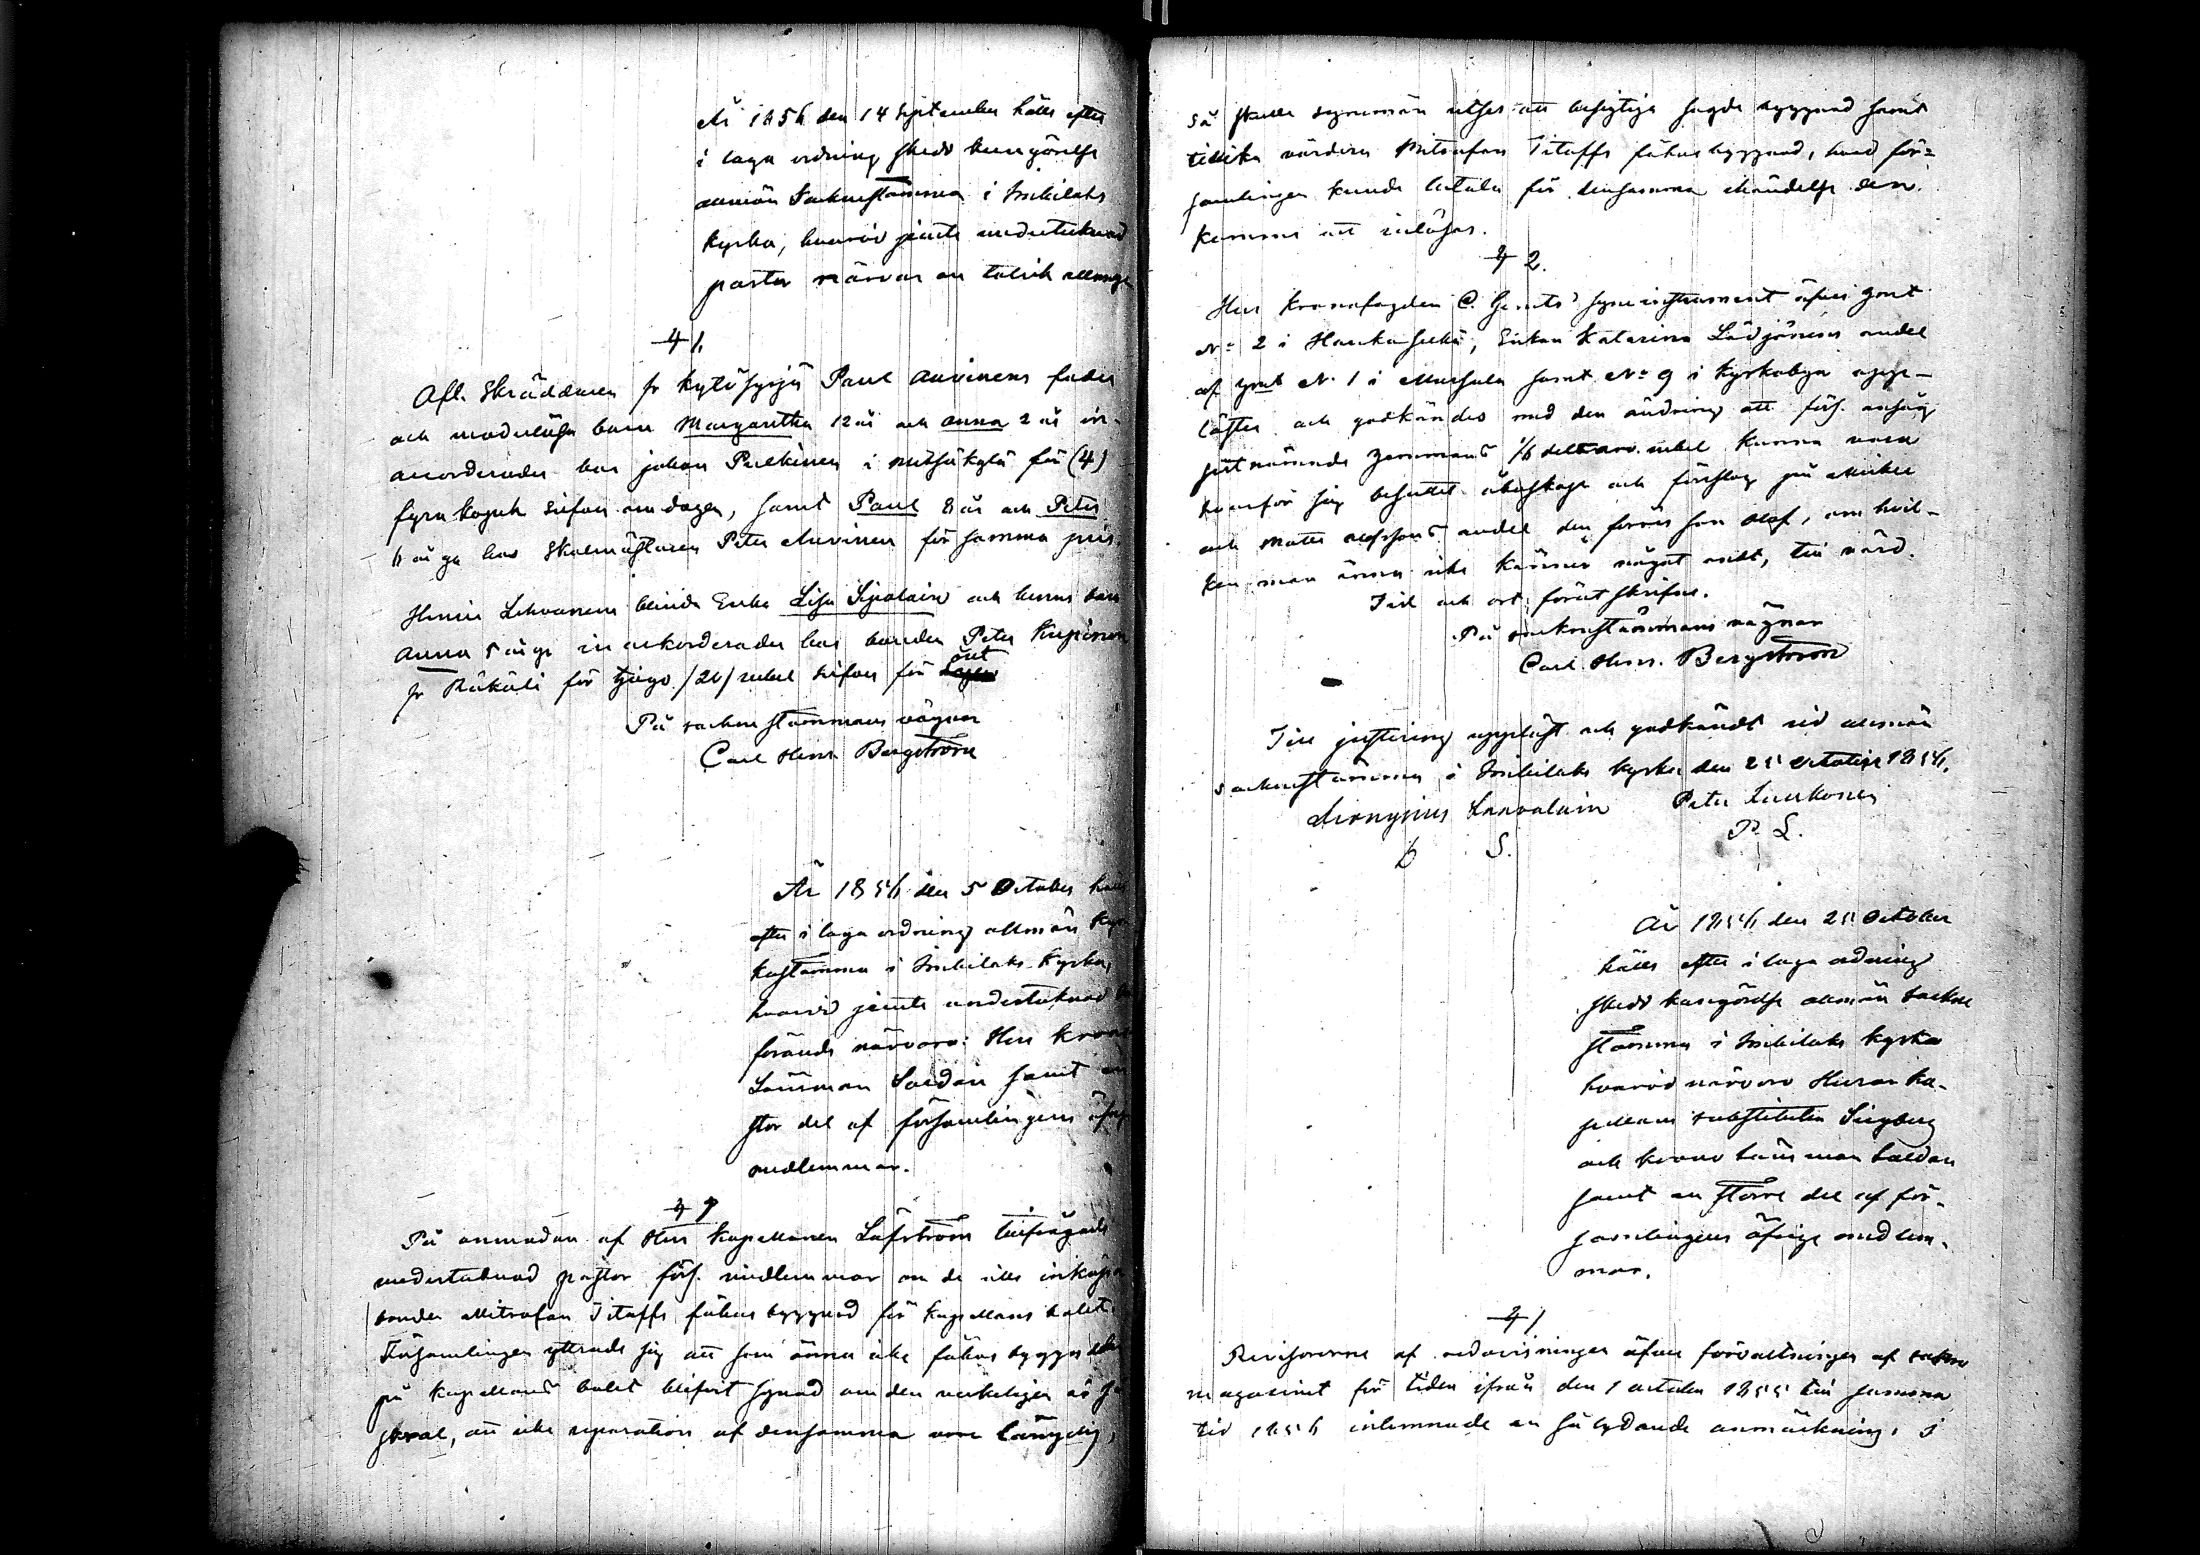 År 1856 den 14 September hölls efter
i laga ordning skedd kungörelse
allmän Sockenstämma i Imbilaks
kyrka, hvarvid jemte undertecknad
pastor närvar en talrik allmoge
§ 1.
Afl. Skräddaren fr Kytösyrjä Paul Auvinens fader
och moderlösa barn Margaretha 12 år och Anna 2 år in-
accorderades hos Johan Pulkkinen i Mitsäkylä för (4)
fyra kopek silfver om dagen, samt Paul 8 år och Peter
6 årga hos Skolmästaren Peter Auvinen för samma pris.
Henric Lehvonens blinda Enka Lisa Sipolain och hennes barn
Anna 5 årge in ackorderades hos bonden Peter
fr Räkäli för tjugo /20/ rubel silfver för året
På sockne stämmans vägnar
Carl Henr. Bergström
År 1856 den 5 October hölls
efter i laga ordning allmän Kyr
kostämma i Imbilaks Kyrka,
hvarvid jemte undertecknad
förande närvaro: Herr Krono
Länsman Soldan samt en
stor del af församlingens öfrige
medlemmar.
§ 1
På anmodan af Herr Kapellanen Löfström tillfrågade
undertecknad pastor förs. medlemmar om de ville inköpa
bonden Mitrofan Titoffs fähus byggnad för Kapellans bolet.
Församlingen yttrade sig att som ännu icke fähus byggnaden
på Kapellans bolet blifvit synad om den verkeligen är så
skral, att icke reparation af densamma vore länglig,
så skulle synemän utses att besigtiga sagde byggnad samt
tillika värdera Mitrofan Titoffs fähus byggnad, hvad för=
samlingen kunde betala för densamma i händelse den
komme att inlösas.
§ 2.
Herr Kronofogden C. Gerits' syneinstrument öfver hemt
No 2 i Haukaselkä, Enkan Katarina Lädjönens andel
af hemt No 1 i Mursula samt No 9 i Kyrkobyn upp-
lästes och godkändes med den ändring att förs. ansåg
sistnämnde hemmans 1/6 dels arv. rubel kunna vara
hvarför sig besuttet åboskap och förslag på Mickel
och Matts Olofssons andel den förres son Olof, om hvil-
ken man ännu icke känner något ondt, till värd.
Tid och ort förut skrifne.
På sockenstämmans vägnar
Carl Henr. Bergström
Till justering uppläst och godkändt vid allmän
sockenstämma i Imbilaks kyrka den 25 October 1856.
Dionysius Laavalain Peter Luukonen
D S. P. L.
År 1856 den 25 October
hölls efter i laga ordning
skedd kungörelse allmän sockne
stämma i Imbilaks Kyrka
hvarvid närvoro Herrar Ka-
pellans substituten Siegberg
och krono länsman Soldan
samt en större del af för-
samlingens öfrige medlem-
mar.
§ 1
Revisorerne af redovisningen öfver förvaltningen af sockne
magasinet för tiden ifrån den 1 october 1855 till samma
tid 1856 inlemnade en så lydande anmärkning: I